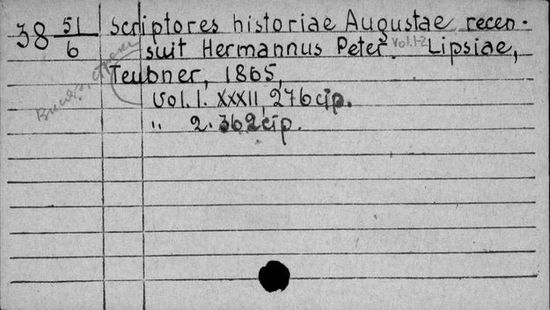 38 51/6 Scriptores historiae Augustae recen-
suit Hermannus Peter. Vol.1-2 Lipsiae,
Teubner, 1865,
Vol. I. XXXII, 276 cтр.
" 2. 362 cтр.